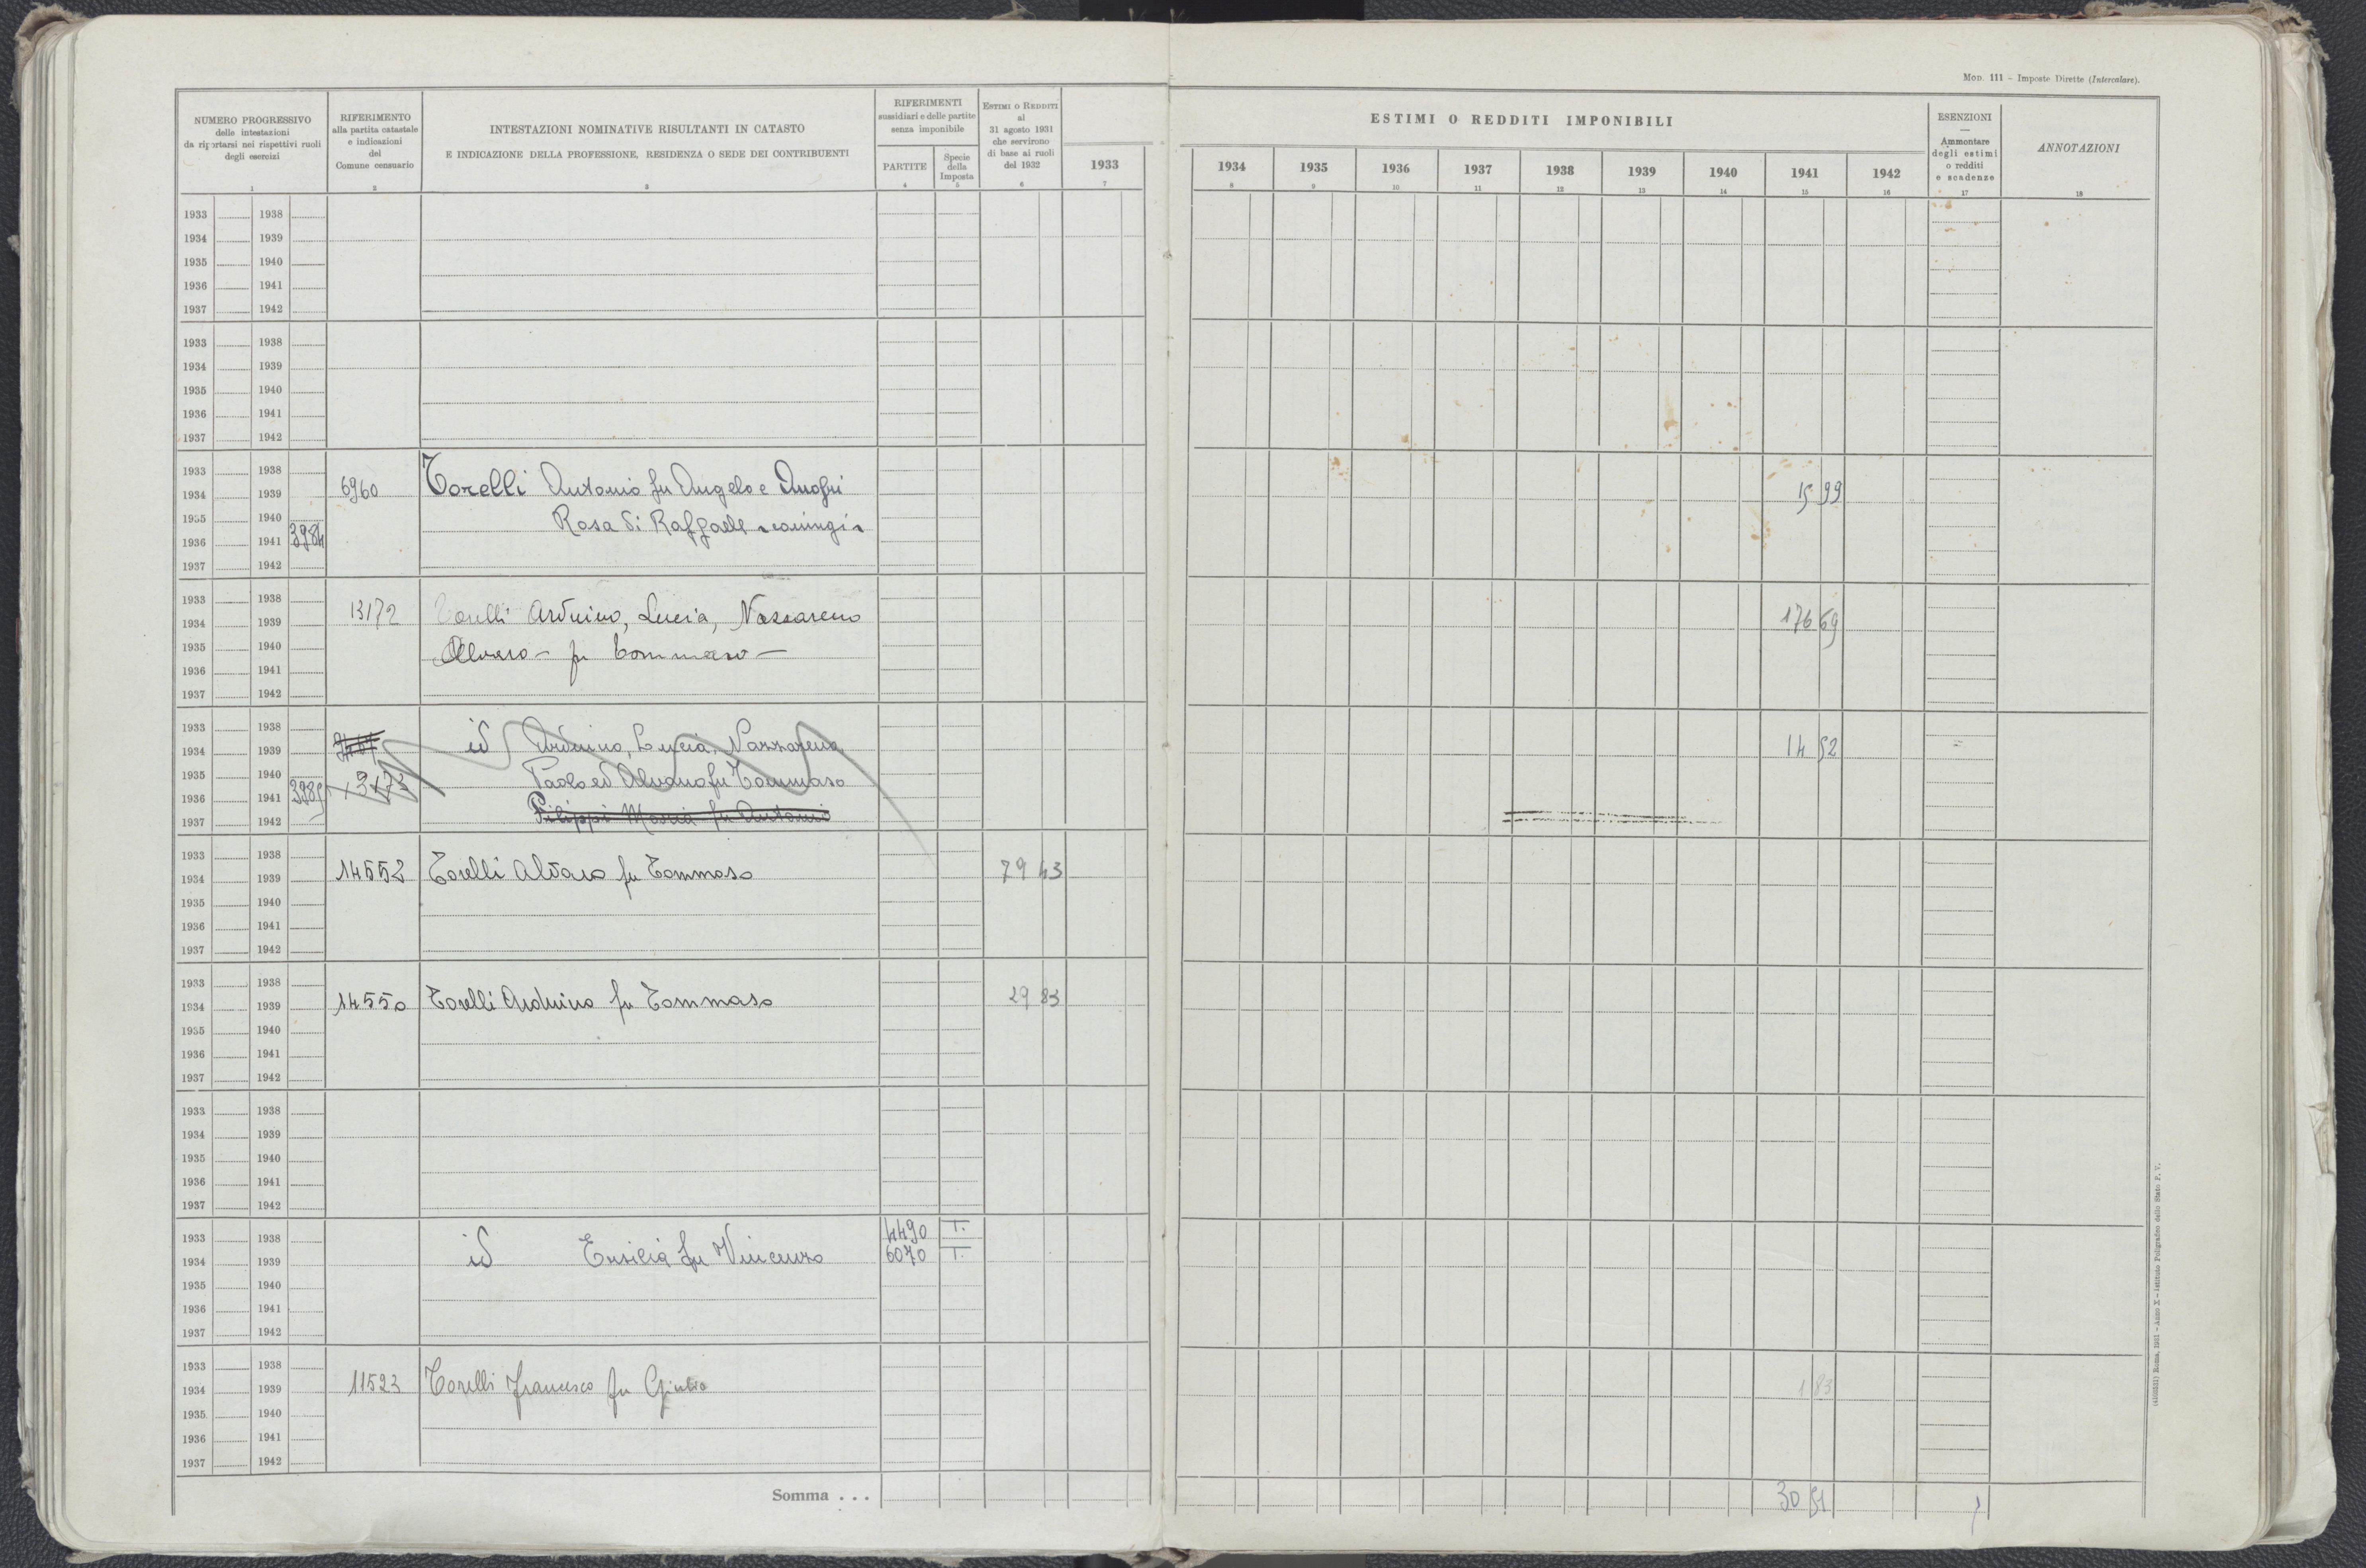 Mod. 111 - Imposte Dirette (Intercalare).
NUMERO PROGRESSIVO
delle intestazioni
da riportarsi nei rispettivi ruoli
degli esercizi
1
RIFERIMENTO
alla partita catastale
e indicazioni
del
Comune censuario
2
INTESTAZIONI NOMINATIVE RISULTANTI IN CATASTO
E INDICAZIONE DELLA PROFESSIONE, RESIDENZA O SEDE DEI CONTRIBUENTI
3
RIFERIMENTI
sussidiari e delle partite
senza imponibile
PARTITE
4
Specie
della
Imposta
5
ESTIMI O REDDITI
al
31 agosto 1931
che servirono
di base ai ruoli
del 1932
6
1933
7
ESTIMI O REDDITI IMPONIBILI
1934 1935 1936 1937 1938 1939 1940 1941 1942
8 9 10 11 12 13 14 15 16
ESENZIONI
—
Ammontare
degli estimi
o redditi
e scadenze
17
ANNOTAZIONI
18
1933 1938
1934 1939
1935 1940
1936 1941
1937 1942
1933 1938
1934 1939
1935 1940
1936 1941
1937 1942
1933 1938
1934 1939 6960 Torelli Antonio fu Angelo e Onofri 15 99
1935 1940 Rosa di Raffaele coniugi
1936 1941 3984
1937 1942
1933 1938
1934 1939 13172 Torelli Arduino, Lucia, Nazzareno 176 69
1935 1940 Alvaro - fu Tommaso -
1936 1941
1937 1942
1933 1938
1934 1939 id Arduino, Lucia, Nazzareno, 14 52
1935 1940 Paolo ed Alvaro fu Tommaso
1936 1941 3985
1937 1942 Filippi Maria fu Antonio
1933 1938
1934 1939 14552 Torelli Alvaro fu Tommaso 79 43
1935 1940
1936 1941
1937 1942
1933 1938
1934 1939 14550 Torelli Arduino fu Tommaso 29 83
1935 1940
1936 1941
1937 1942
1933 1938
1934 1939
1935 1940
1936 1941
1937 1942
1933 1938 4490 T.
1934 1939 id Ersilia fu Vincenzo 6070 T.
1935 1940
1936 1941
1937 1942
1933 1938
1934 1939 11523 Torelli Francesco fu Giulio 1 83
1935 1940
1936 1941
1937 1942
Somma . . . 30 51